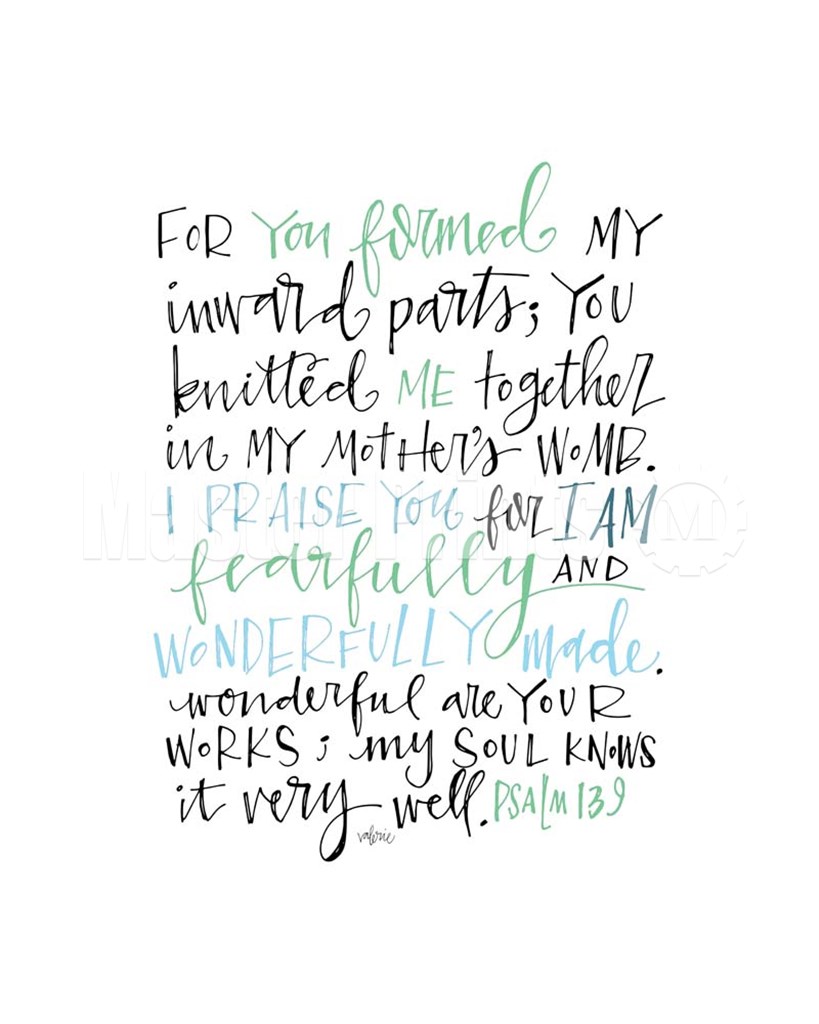 FOR You formed MY
inward parts; YOU
knitted ME together
in MY MOTHER'S WOMB.
I PRAISE YOU for I AM
Master Prints M
fearfully AND
WONDERFULLY made.
wonderful are YOUR
WORKS; my SOUL KNOWS
it very well. PSALM 139
valerie